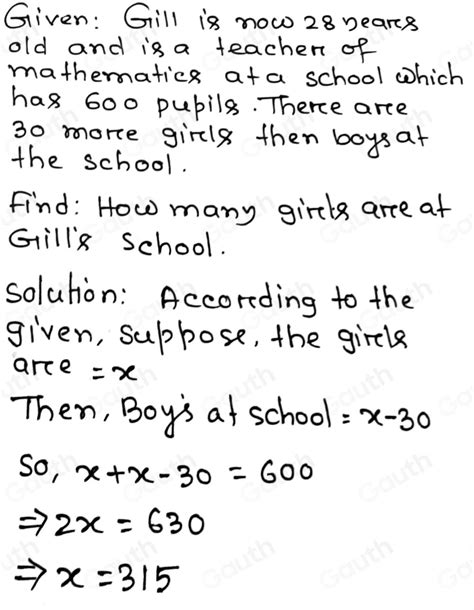 Given: Gill is now 28 years
old and is a teacher of
mathematics at a school which
has 600 pupils. There are
30 more girls then boys at
the school.
Find: How many girls are at
Gill's School.
Solution: According to the
given, suppose, the girls
are = x
Then, Boy's at school = x-30
So, x+x-30 = 600
⇒ 2x = 630
⇒ x = 315